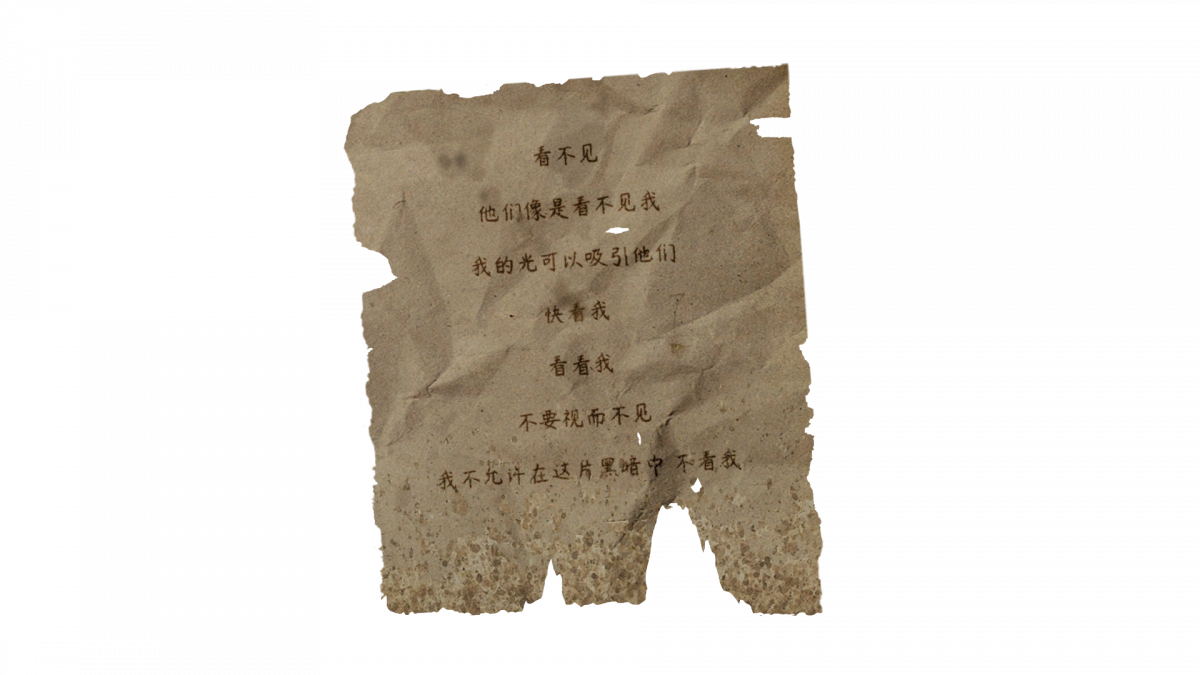 看不见
他们像是看不见我
我的光可以吸引他们
快看我
看看我
不要视而不见
我不允许在这片黑暗中 不看我